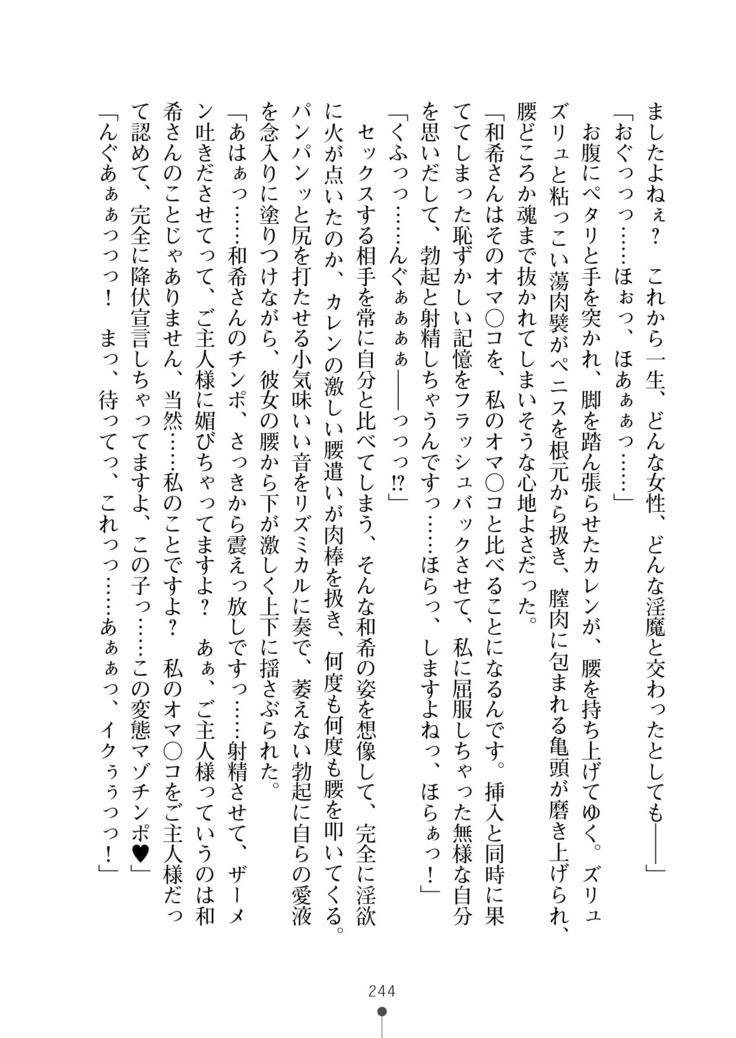 ましたよねぇ？　これから一生、どんな女性、どんな淫魔と交わったとしても――」
「おぐっっっ……ほぉっ、ほあぁぁっ……」
　お腹にペタリと手を突かれ、脚を踏ん張らせたカレンが、腰を持ち上げてゆく。ズリュ
ズリュと粘っこい蕩肉襞がペニスを根元から扱き、膣肉に包まれる亀頭が磨き上げられ、
腰どころか魂まで抜かれてしまいそうな心地よさだった。
「和希さんはそのオマ〇コを、私のオマ〇コと比べることになるんです。挿入と同時に果
ててしまった恥ずかしい記憶をフラッシュバックさせて、私に屈服しちゃった無様な自分
を思いだして、勃起と射精しちゃうんですっ……ほらっ、しますよねっ、ほらぁっ！」
「くふっっ……んぐぁぁぁぁ――っっっ!?」
　セックスする相手を常に自分と比べてしまう、そんな和希の姿を想像して、完全に淫欲
に火が点いたのか、カレンの激しい腰遣いが肉棒を扱き、何度も何度も腰を叩いてくる。
パンパンッと尻を打たせる小気味いい音をリズミカルに奏で、萎えない勃起に自らの愛液
を念入りに塗りつけながら、彼女の腰から下が激しく上下に揺さぶられた。
「あはぁっ……和希さんのチンポ、さっきから震えっ放しですっ……射精させて、ザーメ
ン吐きださせてって、ご主人様に媚びちゃってますよ？　あぁ、ご主人様っていうのは和
希さんのことじゃありません、当然……私のことですよ？　私のオマ〇コをご主人様だっ
て認めて、完全に降伏宣言しちゃってますよ、この子っ……この変態マゾチンポ♥」
「んぐあぁぁっっっ！　まっ、待ってっ、これっっ……あぁぁっ、イクぅぅっっ！」
244